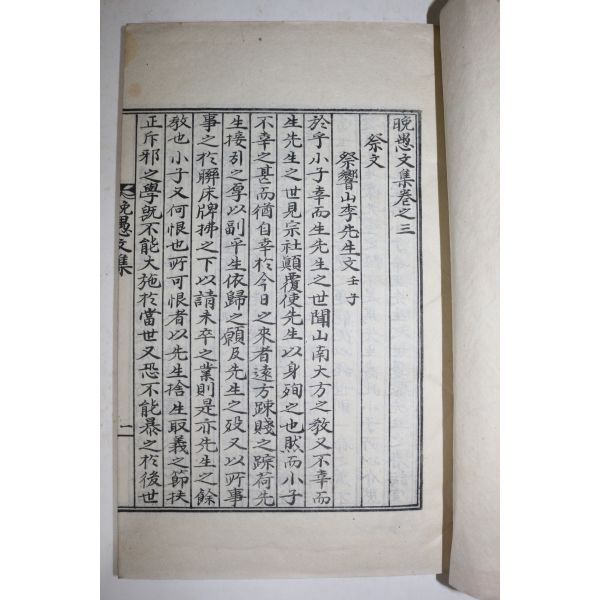 晩愚文集卷之三
祭文
祭響山李先生文 壬子
於乎小子幸而生先生之世聞山南大方之敎又不幸而
生先生之世見宗社顚覆使先生以身殉之也然而小子
不幸之甚而猶自幸於今日之來者遠方踈賤之踪荷先
生接引之厚以副平生依歸之願及先生之歿又以所事
事之於聯床牌拂之下以請未卒之業則是亦先生之餘
敎也小子又何恨也所可恨者以先生捨生取義之節扶
正斥邪之學旣不能大施於當世又恐不能暴之於後世
晩愚文集
一